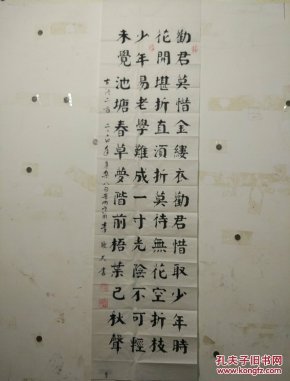 勸君莫惜金縷衣勸君惜取少年時
花開堪折直須折莫待無花空折枝
少年易老學難成一寸光陰不可輕
未覺池塘春草夢階前梧葉已秋聲